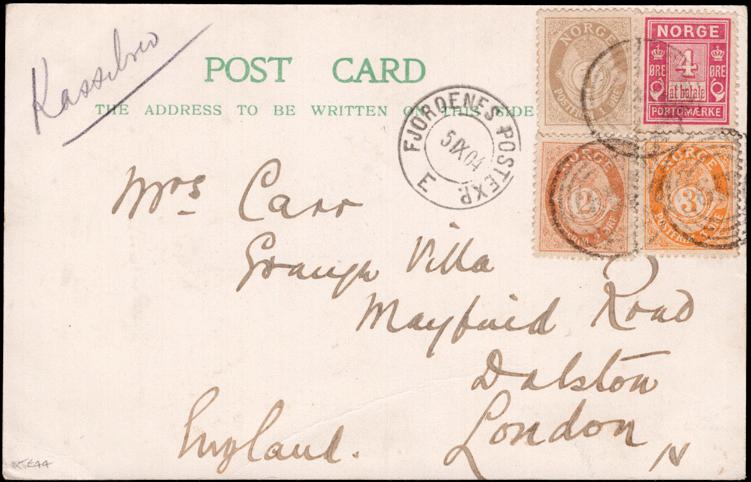 Kassebrev
POST CARD
THE ADDRESS TO BE WRITTEN ON THIS SIDE
FJORDENES POSTEXP.
5 IX 04
E
NORGE
NORGE
4
ØRE ØRE
at betale
PORTOMÆRKE
NORGE
2
NORGE
3
POSTFRIM
Mrs Carr
Grange Villa
Mayfield Road
Dalston
London N
England.